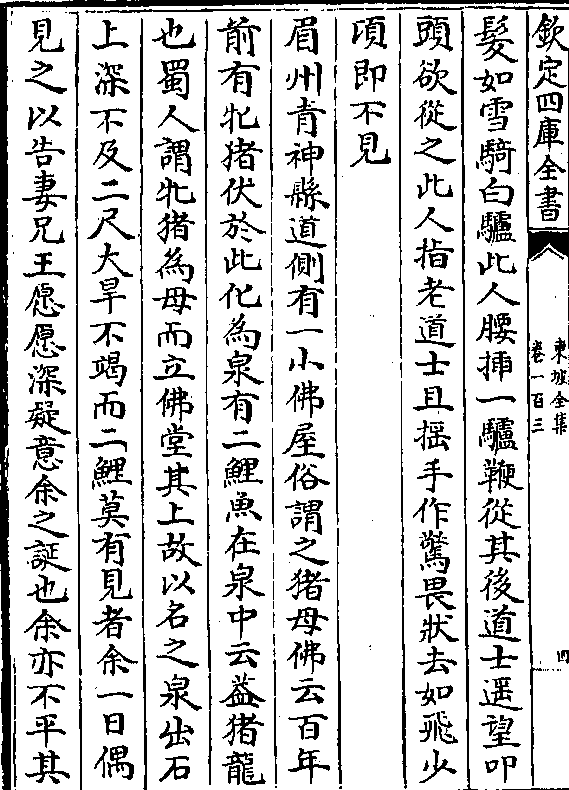 欽定四庫全書
東坡全集
卷一百三
四
髮如雪騎白驢此人腰揷一驢鞭從其後道士遥望叩
頭欲從之此人指老道士且揺手作驚畏狀去如飛少
頃即不見
眉州青神縣道側有一小佛屋俗謂之猪母佛云百年
前有牝猪伏於此化為泉有二鯉魚在泉中云葢猪龍
也蜀人謂牝猪為母而立佛堂其上故以名之泉出石
上深不及二尺大旱不竭而二鯉莫有見者余一日偶
見之以告妻兄王愿愿深疑意余之誕也余亦不平其